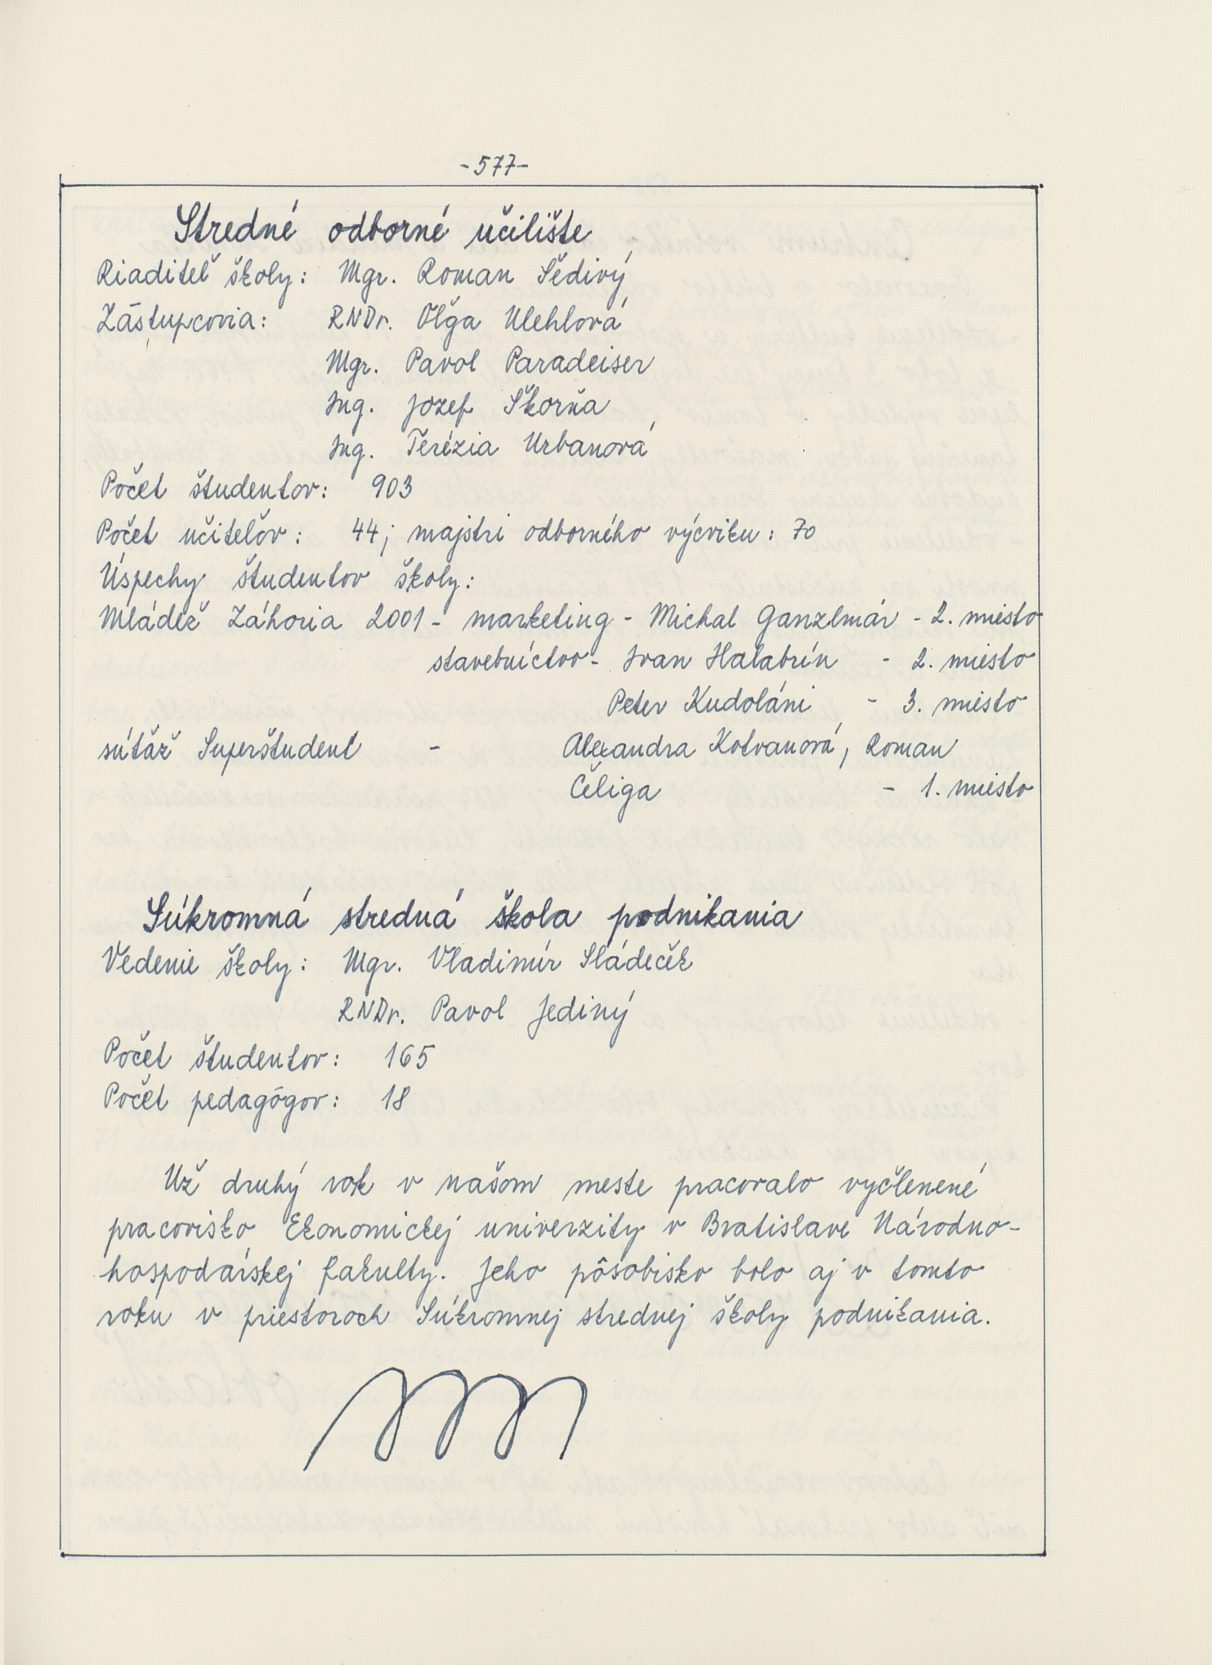 -577-
Stredné odborné učilište
Riaditeľ školy: Mgr. Roman Šedivý
Zástupcovia: RNDr. Oľga Uhlová
Mgr. Pavol Paradeiser
Ing. Jozef Škorňa
Ing. Terézia Urbanová
Počet študentov: 903
Počet učiteľov: 44; majstri odborného výcviku: 70
Úspechy študentov školy:
Mládež Záhoria 2001 - marketing - Michal Ganzlmár - 2. miesto
stavebníctvo - Ivan Halabrín - 2. miesto
Peter Kudoláni - 3. miesto
súťaž Superštudent - Alexandra Kotvanová, Roman
Čeliga - 1. miesto
Súkromná stredná škola podnikania
Vedenie školy: Mgr. Vladimír Sládeček
RNDr. Pavol Jediný
Počet študentov: 165
Počet pedagógov: 18
Už druhý rok v našom meste pracovalo vyčlenené
pracovisko Ekonomickej univerzity v Bratislave Národno-
hospodárskej fakulty. Jeho pôsobisko bolo aj v tomto
roku v priestoroch Súkromnej strednej školy podnikania.